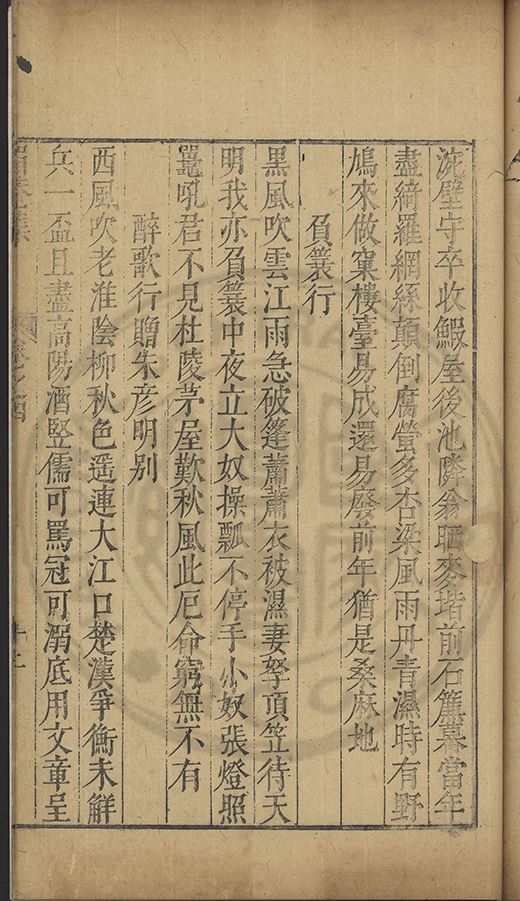 壁守卒收鰕屋後池隣翁晒麥堦前石篤暮當年
盡綺羅網絲顛倒腐螢多杏梁風雨丹青濕時有野
鳩來做窠樓臺易成還易廢前年猶是桑麻地
負簑行
黒風吹雲江雨急破篷蕭蕭衣被濕妻孥頂笠待天
明我亦負簑中夜立大奴操瓢不停手小奴張燈照
鼉吼君不見杜陵茅屋歎秋風此厄命窮無不有
醉歌行贈朱彦明别
西風吹老淮陰柳秋色遥連大江口楚漢爭衡未觧
兵一盃且盡高陽酒竪儒可罵冠可溺底用文章呈